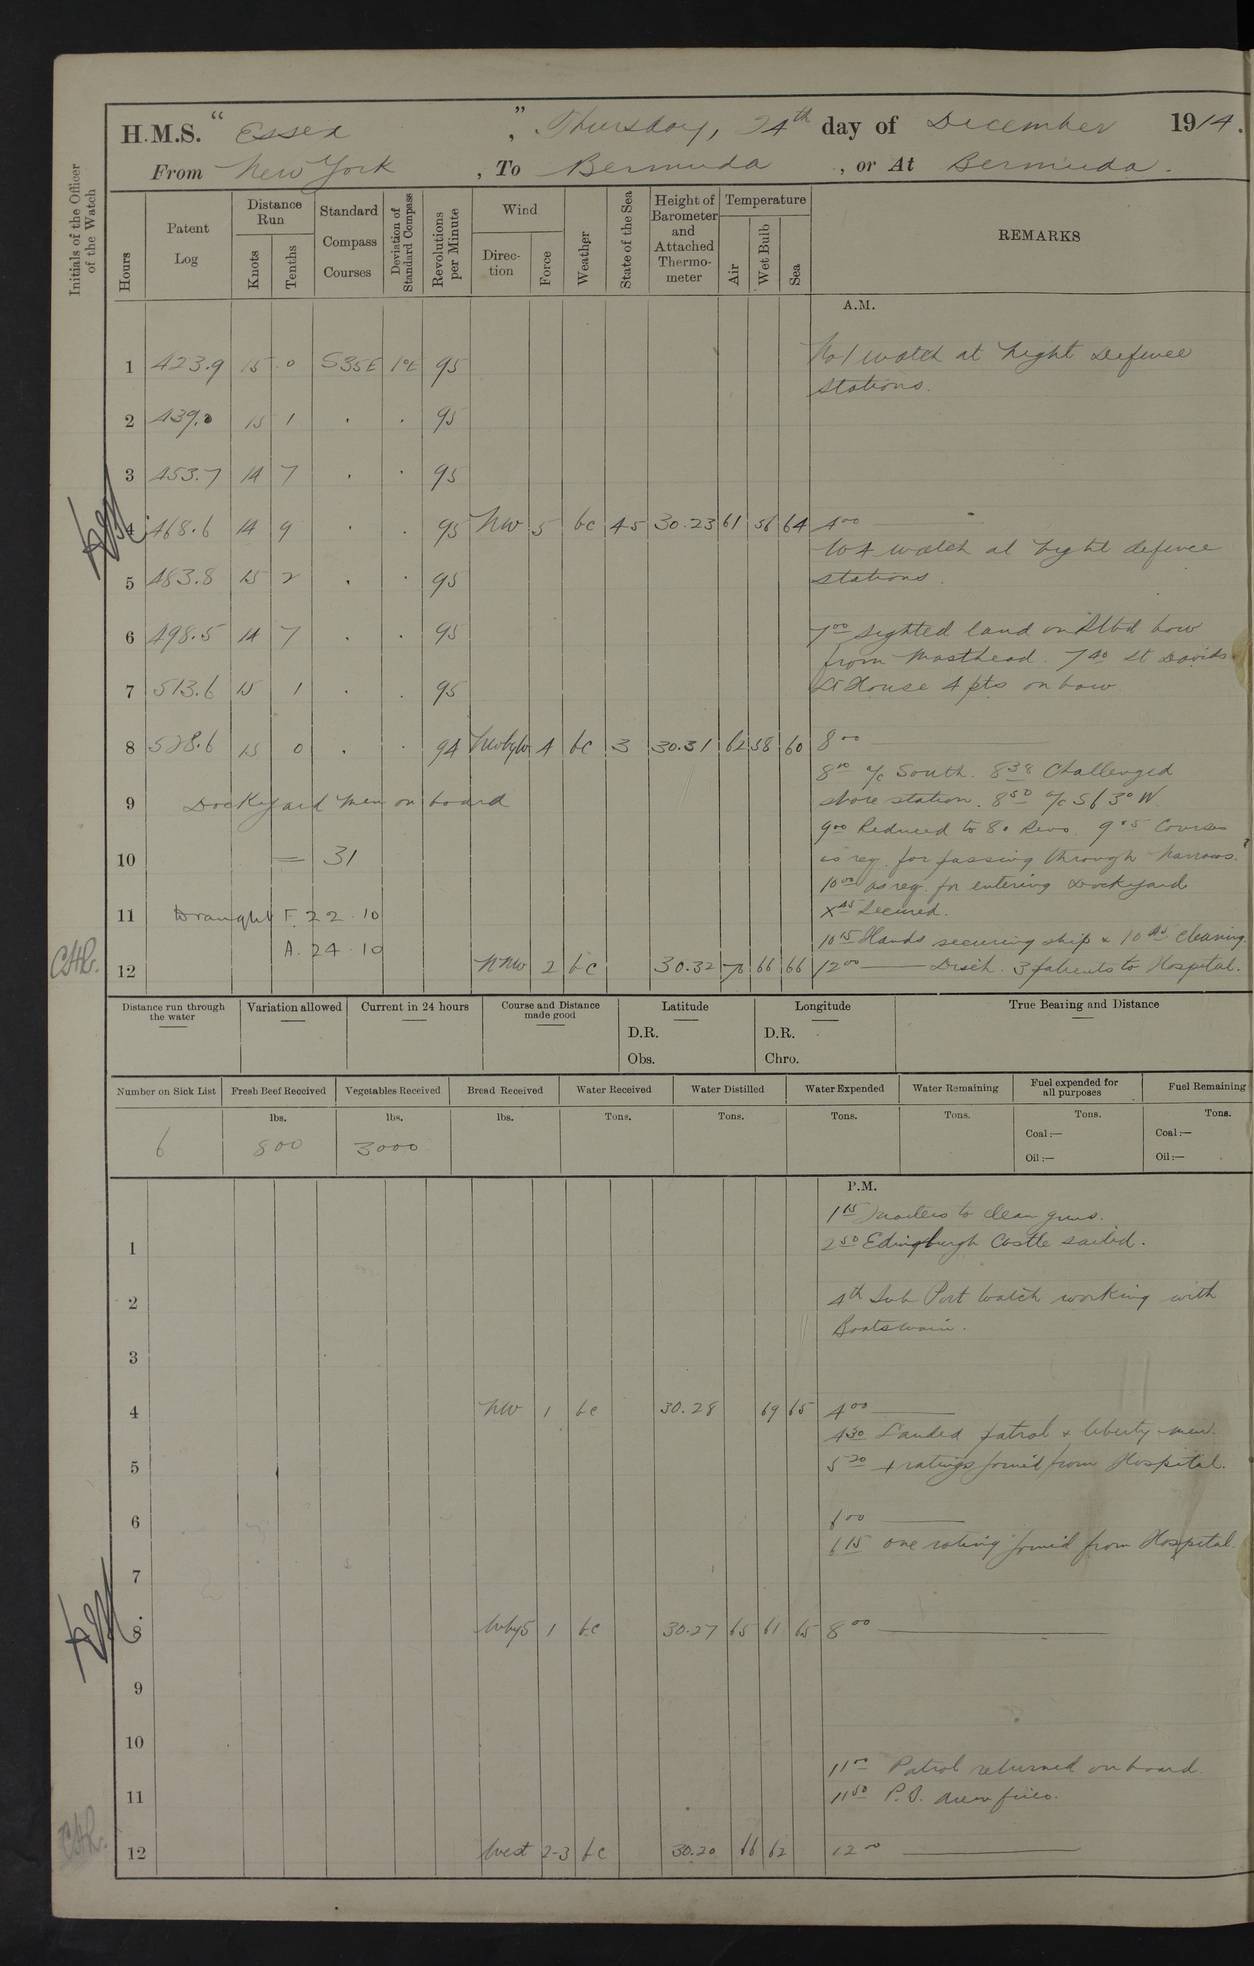 H.M.S. "Essex", Thursday, 24th day of December 1914.
From New York, To Bermuda, or At Bermuda.
Initials of the Officer of the Watch
Hours
Patent Log
Distance Run
Knots
Tenths
Standard Compass Courses
Deviation of Standard Compass
Revolutions per Minute
Wind
Direction
Force
Weather
State of the Sea
Height of Barometer and Attached Thermometer
Temperature
Air
Wet Bulb
Sea
REMARKS
A.M.
1 423.9 15 0 S35E 1°E 95 No 1 watch at Night Defence
stations.
2 439.0 15 1 . . 95
3 453.7 14 7 . . 95
4 468.6 14 9 . . 95 NW 5 bc 45 30.23 61 56 64 4 00
watch at Night defence
5 483.8 15 2 . . 95 stations.
6 498.5 14 7 . . 95 7 00 Sighted land on Stbd bow
from Masthead. 7 40 St Davids
7 513.6 15 1 . . 95 Lt House 4 pts on bow
8 528.6 15 0 . . 94 NWbyW 4 bc 3 30.31 62 58 60 8 00
8 00 a/c South. 8 38 Challenged
9 Dockyard Men on board shore station. 8 50 a/c S63°W
9 00 Reduced to 80 Revs. 9 05 Courses
10 = 31 as req. for passing through Narrows.
10 00 as req. for entering Dockyard
11 Draught F. 22.10 X 45 Secured.
A. 24.10 10 15 Hands securing ship & 10 45 cleaning
12 NNW 2 bc 30.32 70 66 66 12 00 Disch. 3 patients to Hospital.
Distance run through the water
Variation allowed
Current in 24 hours
Course and Distance made good
Latitude
D.R.
Obs.
Longitude
D.R.
Chro.
True Bearing and Distance
Number on Sick List
Fresh Beef Received
Vegetables Received
Bread Received
Water Received
Water Distilled
Water Expended
Water Remaining
Fuel expended for all purposes
Fuel Remaining
lbs. lbs. lbs. Tons. Tons. Tons. Tons. Tons. Tons.
Coal:— Coal:—
Oil:— Oil:—
6 800 3000
P.M.
1 15 Quarters to clean guns.
1 2 50 Edingburgh Castle sailed.
2 4th Sub Port Watch working with
Boatswain.
3
4 NW 1 bc 30.28 69 65 4 00
4 30 Landed patrol & liberty men.
5 5 20 4 ratings joined from Hospital.
6 6 00
6 15 one rating joined from Hospital.
7
8 WbyS 1 bc 30.27 65 61 65 8 00
9
10
11 00 Patrol returned on board
11 11 50 P.S. drew fires.
12 West 2-3 bc 30.20 66 62 12 00